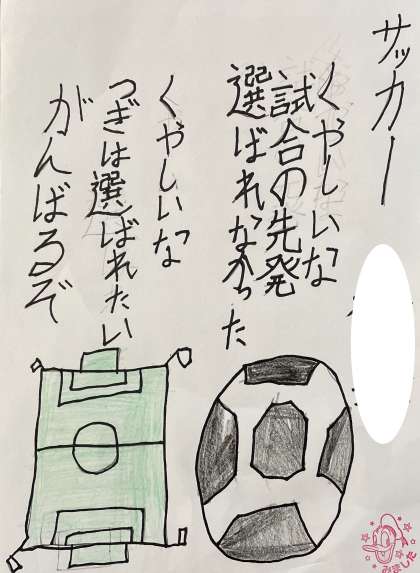 サッカー
くやしいな
試合の先発
選ばれなかった
くやしいな
つぎは選ばれたい
がんばるぞ
みました